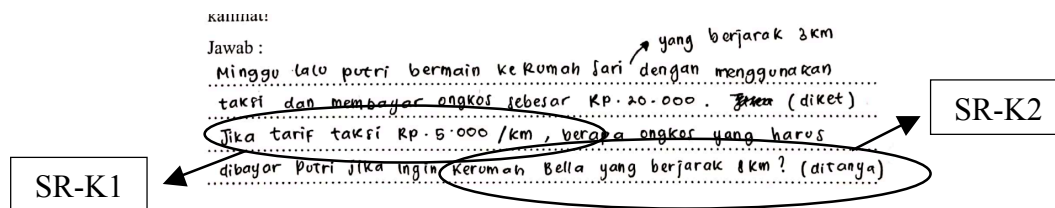 kalimat!
yang berjarak 3 km
Jawab :
Minggu lalu putri bermain ke Rumah Sari dengan menggunakan
taksi dan membayar ongkos sebesar RP. 20.000. (diket)
Jika tarif taksi Rp. 5.000 /km, berapa ongkos yang harus
dibayar Putri jika ingin kerumah Bella yang berjarak 8 km? (ditanya)
SR-K2
SR-K1